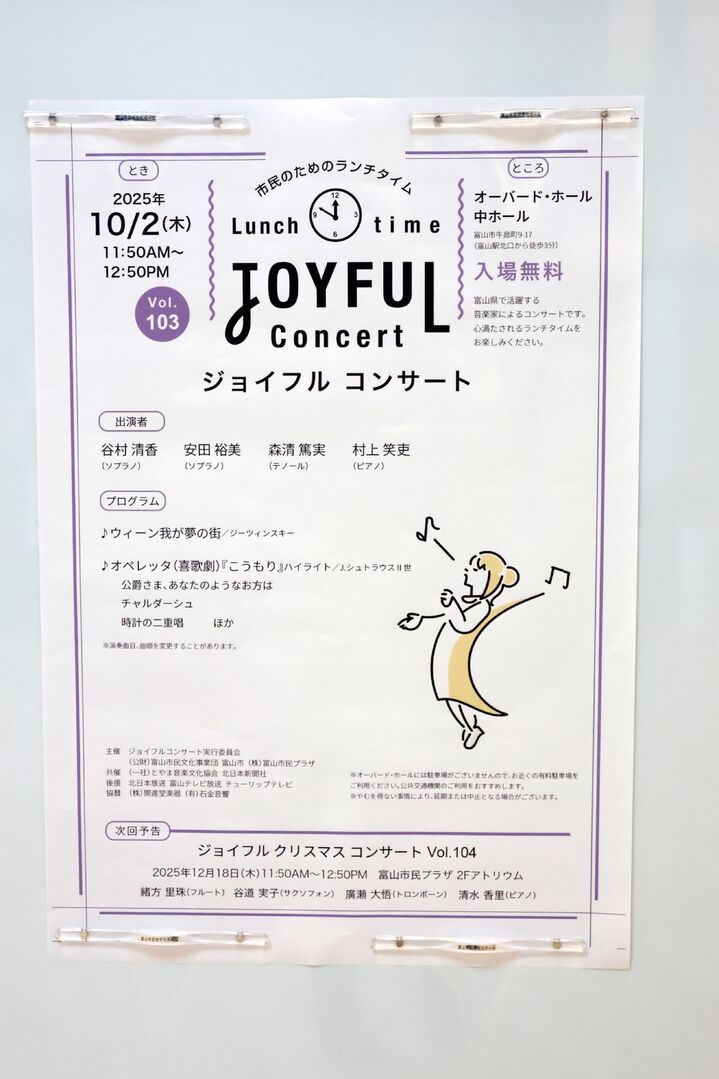 とき
2025年
10/2(木)
11:50AM～
12:50PM
Vol.
103
市民のためのランチタイム
Lunch time
12
3
6
9
JOYFUL
Concert
ジョイフル コンサート
ところ
オーバード・ホール
中ホール
富山市牛島町9-17
(富山駅北口から徒歩3分)
入場無料
富山県で活躍する
音楽家によるコンサートです。
心満たされるランチタイムを
お楽しみください。
出演者
谷村 清香 安田 裕美 森清 篤実 村上 笑吏
(ソプラノ) (ソプラノ) (テノール) (ピアノ)
プログラム
♪ウィーン我が夢の街／ジーツィンスキー
♪オペレッタ(喜歌劇)『こうもり』ハイライト／J.シュトラウスⅡ世
公爵さま、あなたのようなお方は
チャルダーシュ
時計の二重唱 ほか
※演奏曲目、曲順を変更することがあります。
主催 ジョイフルコンサート実行委員会
(公財)富山市民文化事業団 富山市 (株)富山市民プラザ
共催 (一社)とやま音楽文化協会 北日本新聞社
後援 北日本放送 富山テレビ放送 チューリップテレビ
協賛 (株)開進堂楽器 (有)石金音響
※オーバード・ホールには駐車場がございませんので、お近くの有料駐車場を
ご利用ください。公共交通機関のご利用をおすすめします。
※やむを得ない事情により、延期または中止となる場合がございます。
次回予告
ジョイフル クリスマス コンサート Vol.104
2025年12月18日(木)11:50AM～12:50PM 富山市民プラザ 2Fアトリウム
緒方 里珠(フルート) 谷道 実子(サクソフォン) 廣瀬 大悟(トロンボーン) 清水 香里(ピアノ)